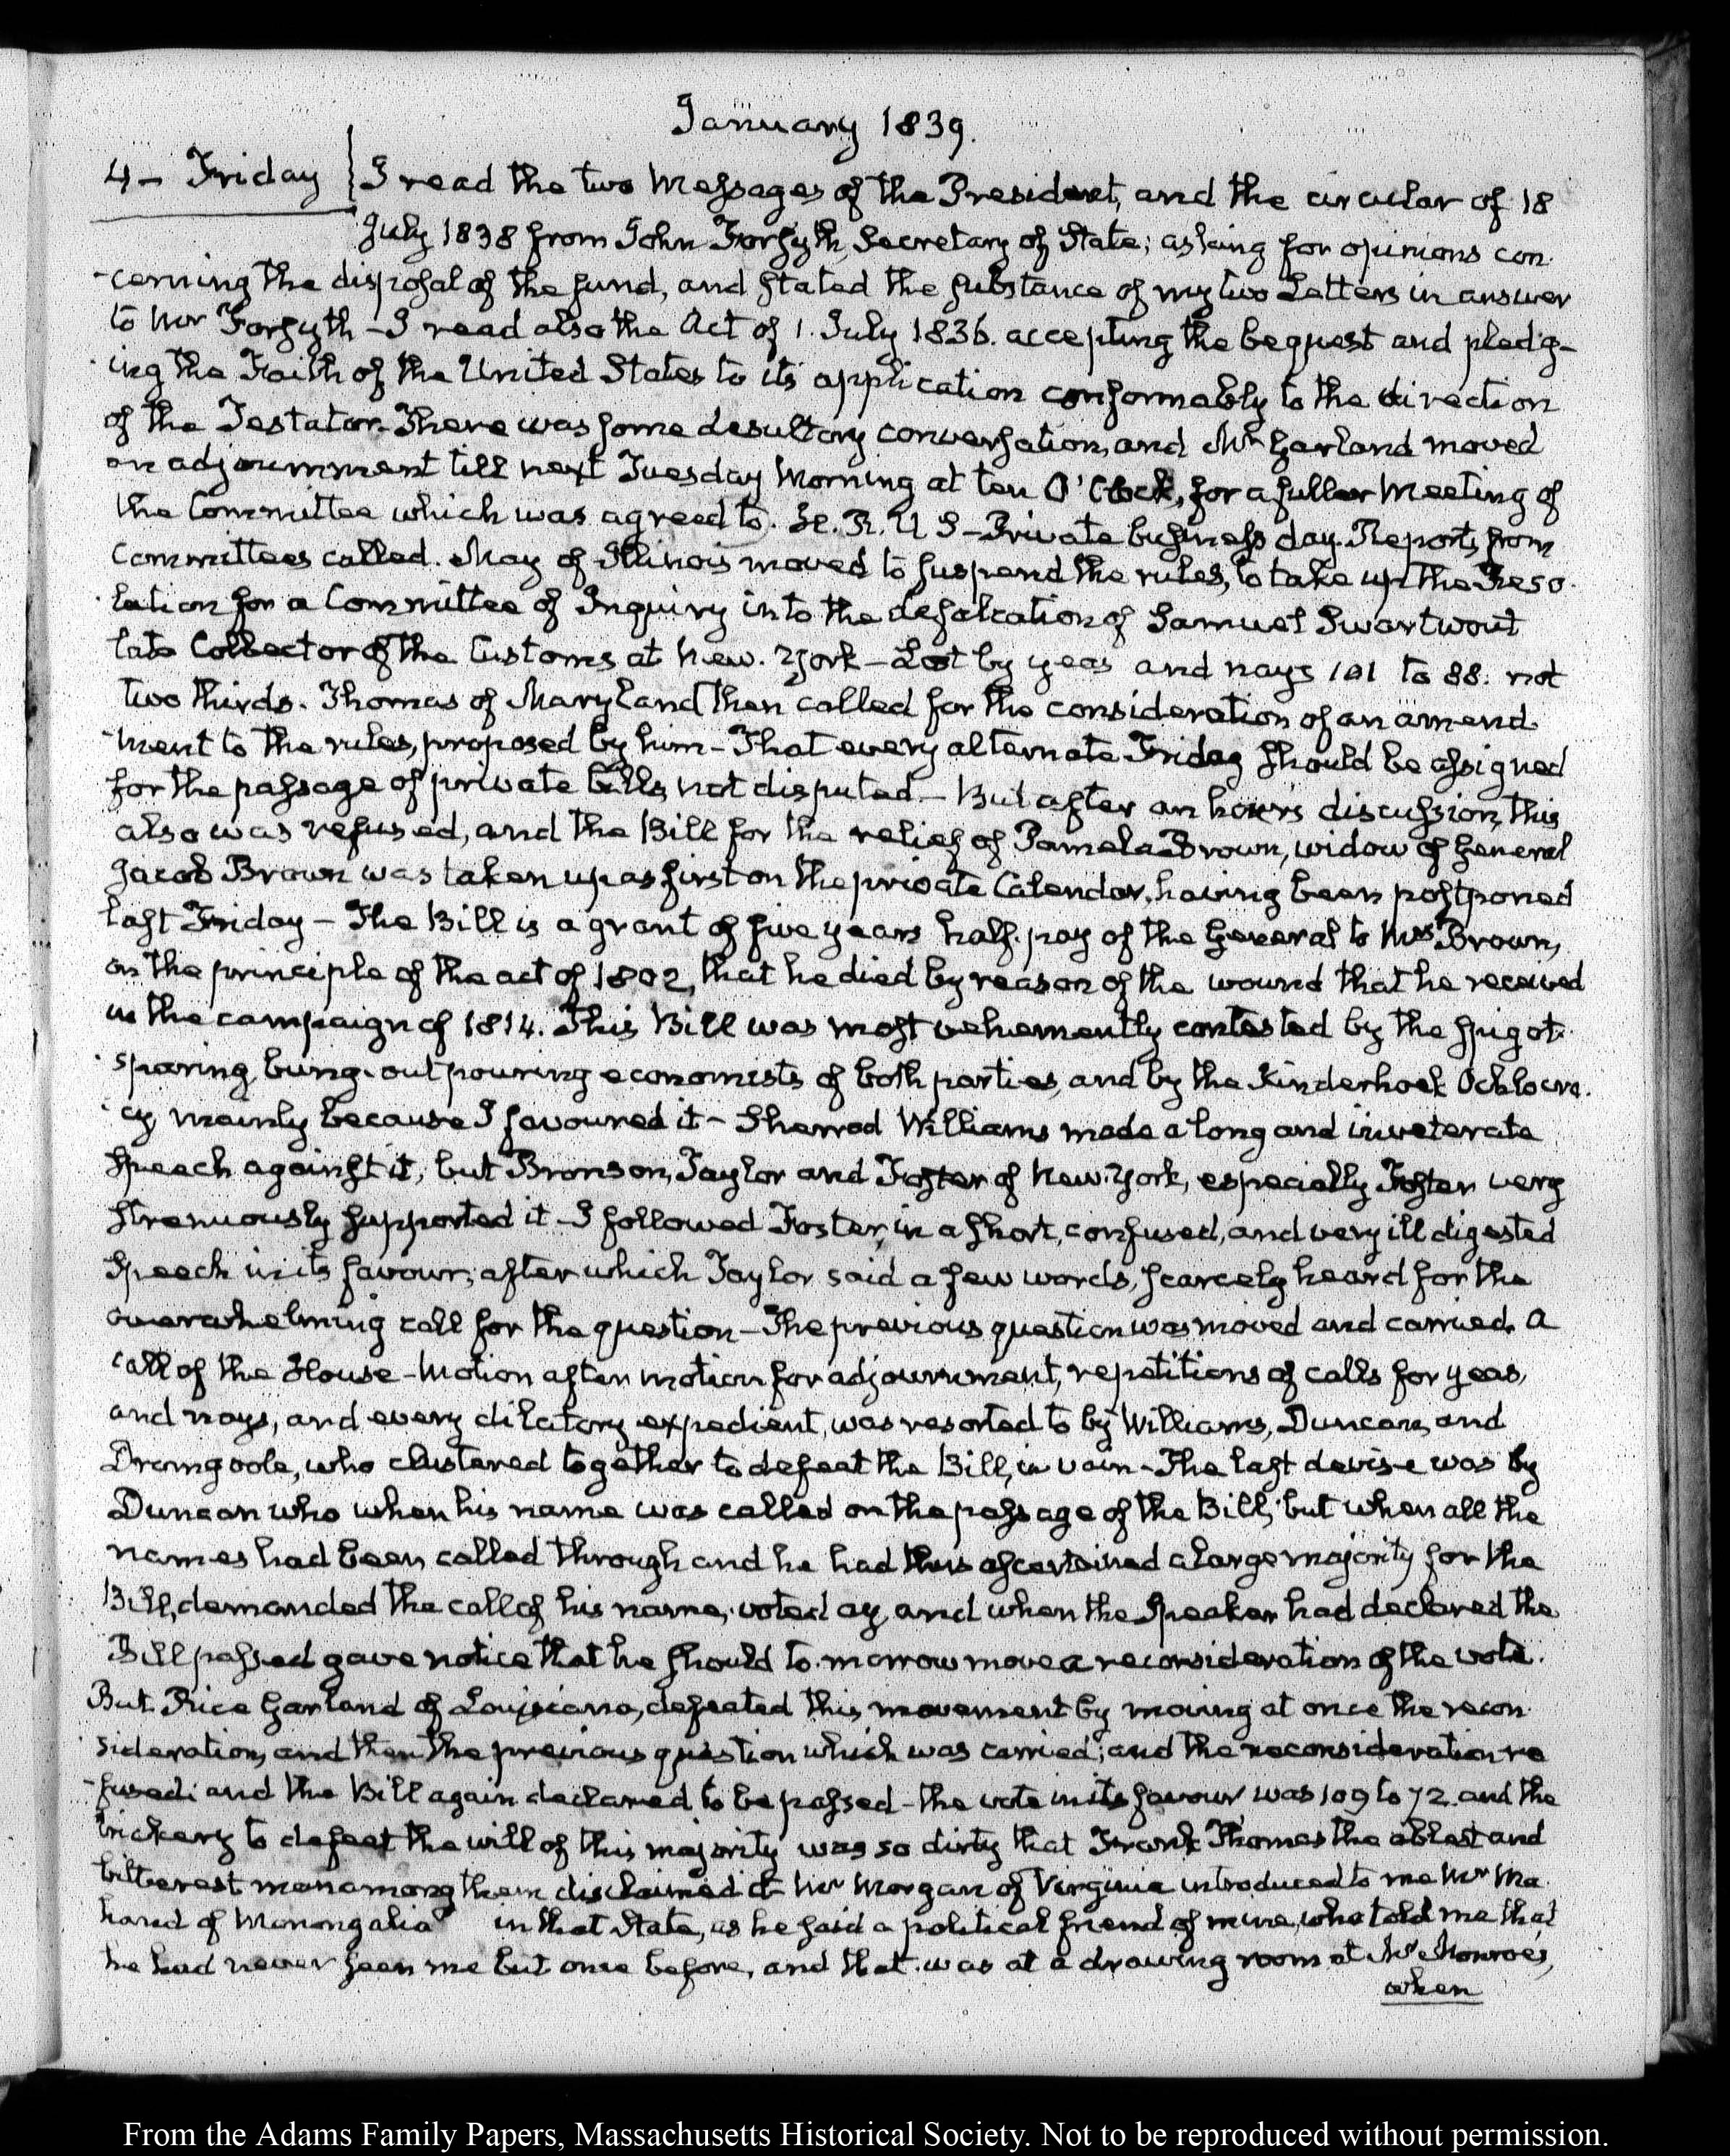 January 1839.
4 – Friday I read the two Messages of the President, and the circular of 18
July 1838 from John Forsyth, Secretary of State; asking for opinions con-
-cerning the disposal of the fund, and stated the substance of my two Letters in answer
to Mr Forsyth – I read also the Act of 1. July 1836. accepting the bequest and pledg-
ing the Faith of the United States to its application conformably to the direction
of the Testator. There was some desultory conversation, and Mr Garland moved
an adjournment till next Tuesday Morning at ten O'Clock, for a fuller Meeting of
the Committee which was agreed to. H. R. U S – Private business day. Reports from
Committees called. May of Illinois moved to suspend the rules, to take up the Reso-
-lution for a Committee of Inquiry into the defalcation of Samuel Swartwout
late Collector of the Customs at New-York – Lost by yeas and nays 101 to 88. not
two thirds. Thomas of Maryland then called for the consideration of an amend-
-ment to the rules, proposed by him – That every alternate Friday should be assigned
for the passage of private bills, not disputed – But after an hours discussion, this
also was refused, and the Bill for the relief of Pamela Brown, widow of General
Jacob Brown was taken up as first on the private Calendar, having been postponed
last Friday – The Bill is a grant of five years half-pay of the General to Mrs Brown,
on the principle of the act of 1802, that he died by reason of the wound that he received
in the campaign of 1814. This Bill was most vehemently contested by the spigot-
-sparing, bung-out pouring economists of both parties, and by the Kinderhook Ochlocra-
-cy mainly because I favoured it – Sherrod Williams made a long and inveterate
Speech against it, but Bronson, Taylor and Foster of New-York, especially Foster very
strenuously supported it – I followed Foster, in a short, confused, and very ill digested
Speech in its favour; after which Taylor said a few words, scarcely heard for the
overwhelming call for the question – The previous question was moved and carried. A
call of the House – Motion after motion for adjournment, repetitions of calls for yeas,
and nays, and every dilatory expedient, was resorted to by Williams, Duncan, and
Dromgoole, who clustered together to defeat the Bill, in vain – The last devise was by
Duncan who when his name was called on the passage of the Bill; but when all the
names had been called through and he had thus ascertained a large majority for the
Bill, demanded the call of his name, voted ay, and when the Speaker had declared the
Bill passed gave notice that he should to-morrow move a reconsideration of the vote.
But Rice Garland of Louisiana, defeated this movement by moving at once the recon-
sideration, and then the previous question which was carried; and the reconsideration re
-fused; and the Bill again declared to be passed – the vote in its favour was 109 to 72. and the
trickery to defeat the will of this majority was so dirty that Frank Thomas the ablest and
bitterest man among them disclaimed it – Mr Morgan of Virginia introduced to me Mr Ma-
hand of Monongalia in that State, as he said a political friend of mine, who told me that
he had never seen me but once before, and that was at a drawing room at Mr Monroe's,
when
From the Adams Family Papers, Massachusetts Historical Society. Not to be reproduced without permission.